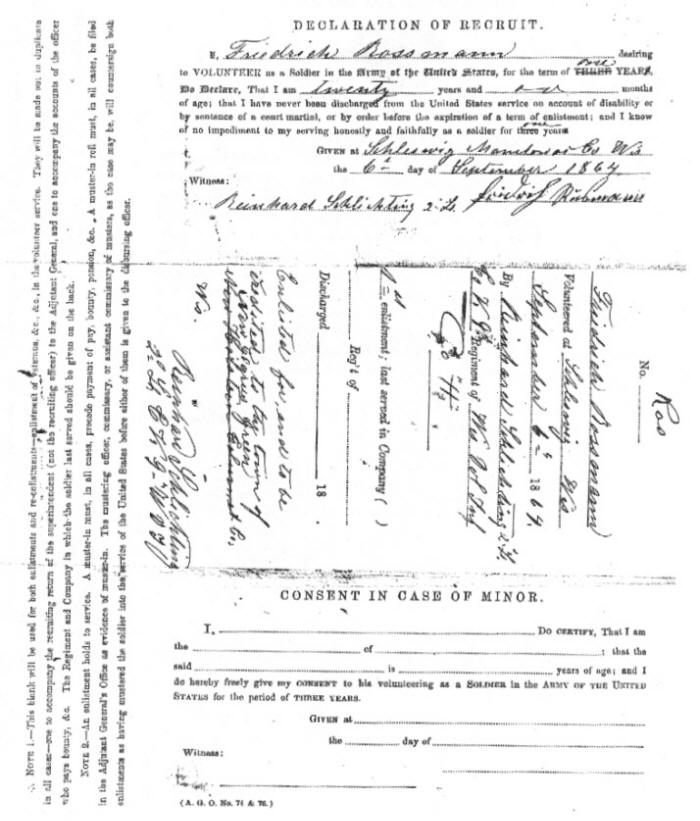 DECLARATION OF RECRUIT.
I, Friedrich Rossmann desiring
to VOLUNTEER as a Soldier in the Army of the United States, for the term of THREE one YEARS,
Do Declare, That I am twenty years and months
of age; that I have never been discharged from the United States service on account of disability or
by sentence of a court martial, or by order before the expiration of a term of enlistment; and I know
of no impediment to my serving honestly and faithfully as a soldier for three one years
GIVEN at Schleswig Manitowoc Co Wis
the 6th day of September 1864
Witness:
Reinhard Schlichting 2. Lt.
No.
Ros
Friedrich Rossmann
Volunteered at Schleswig Wis
September 6th 1864,
By Reinhard Schlichting 2. Lt.
Co K 9th Regiment of Wis Vol Inf
Co H
1st enlistment; last served in Company ( )
Reg't of
Discharged 18
Enlisted for, and to be
credited to the town of
New Holstein Calumet Co,
Wis.
Reinhard Schlichting
2d Lt Co K 9 W V I
CONSENT IN CASE OF MINOR.
I, Do CERTIFY, That I am
the of ; that the
said is years of age; and I
do hereby freely give my CONSENT to his volunteering as a SOLDIER in the ARMY OF THE UNITED
STATES for the period of THREE YEARS.
GIVEN at
the day of
Witness:
(A. G. O. No. 74 & 76.)
NOTE 1.—This blank will be used for both enlistments and re-enlistments—enlistment of veterans, &c., &c., in the volunteer service. They will be made out in duplicate
in all cases—one to accompany the recruiting return of the superintendent (not the recruiting officer) to the Adjutant General, and one to accompany the accounts of the officer
who pays bounty, &c. The Regiment and Company in which the soldier last served should be given on the back.
NOTE 2.—An enlistment holds to service. A muster-in must, in all cases, precede payment of pay, bounty, pension, &c. A muster-in roll must, in all cases, be filed
in the Adjutant General's Office as evidence of muster-in. The mustering officer, commissary, or assistant commissary of musters, as the case may be, will countersign both
enlistments as having mustered the soldier into the service of the United States before either of them is given to the disbursing officer.